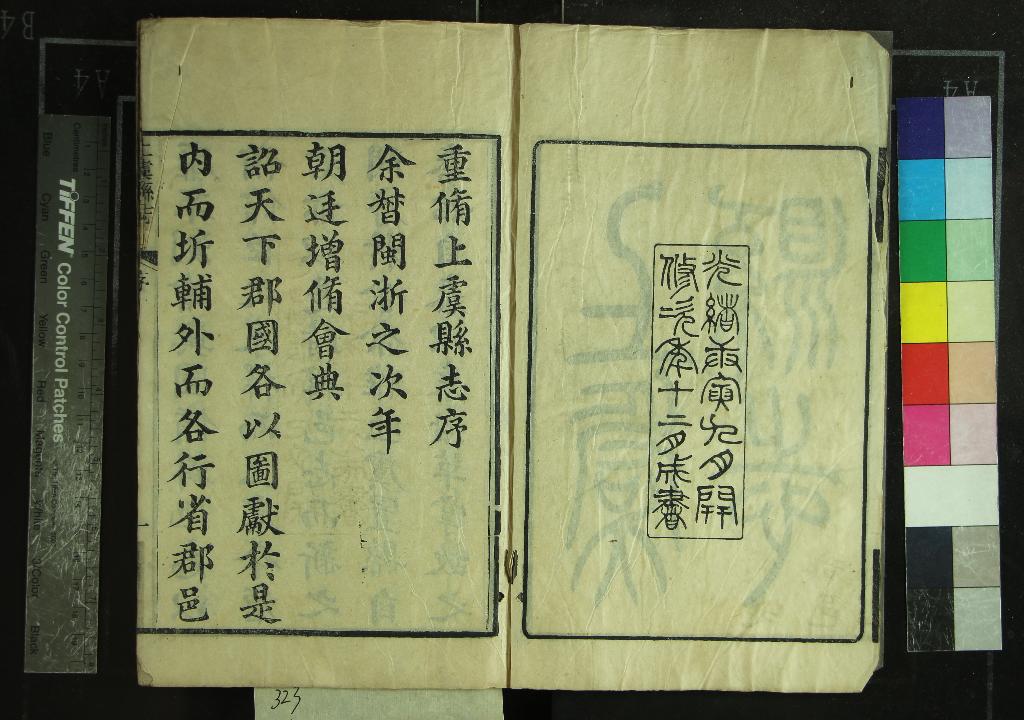 光緒庚寅九月開
修次年十二月成書
重脩上虞縣志序
余督閩浙之次年
朝廷增脩會典
詔天下郡國各以圖獻於是
内而圻輔外而各行省郡邑
上虞縣志
序
一
TIFFEN Color Control Patches
Centimetres
Blue
Cyan
Green
Yellow
Red
Magenta
3/Color
Black
A4
A4
B4
323